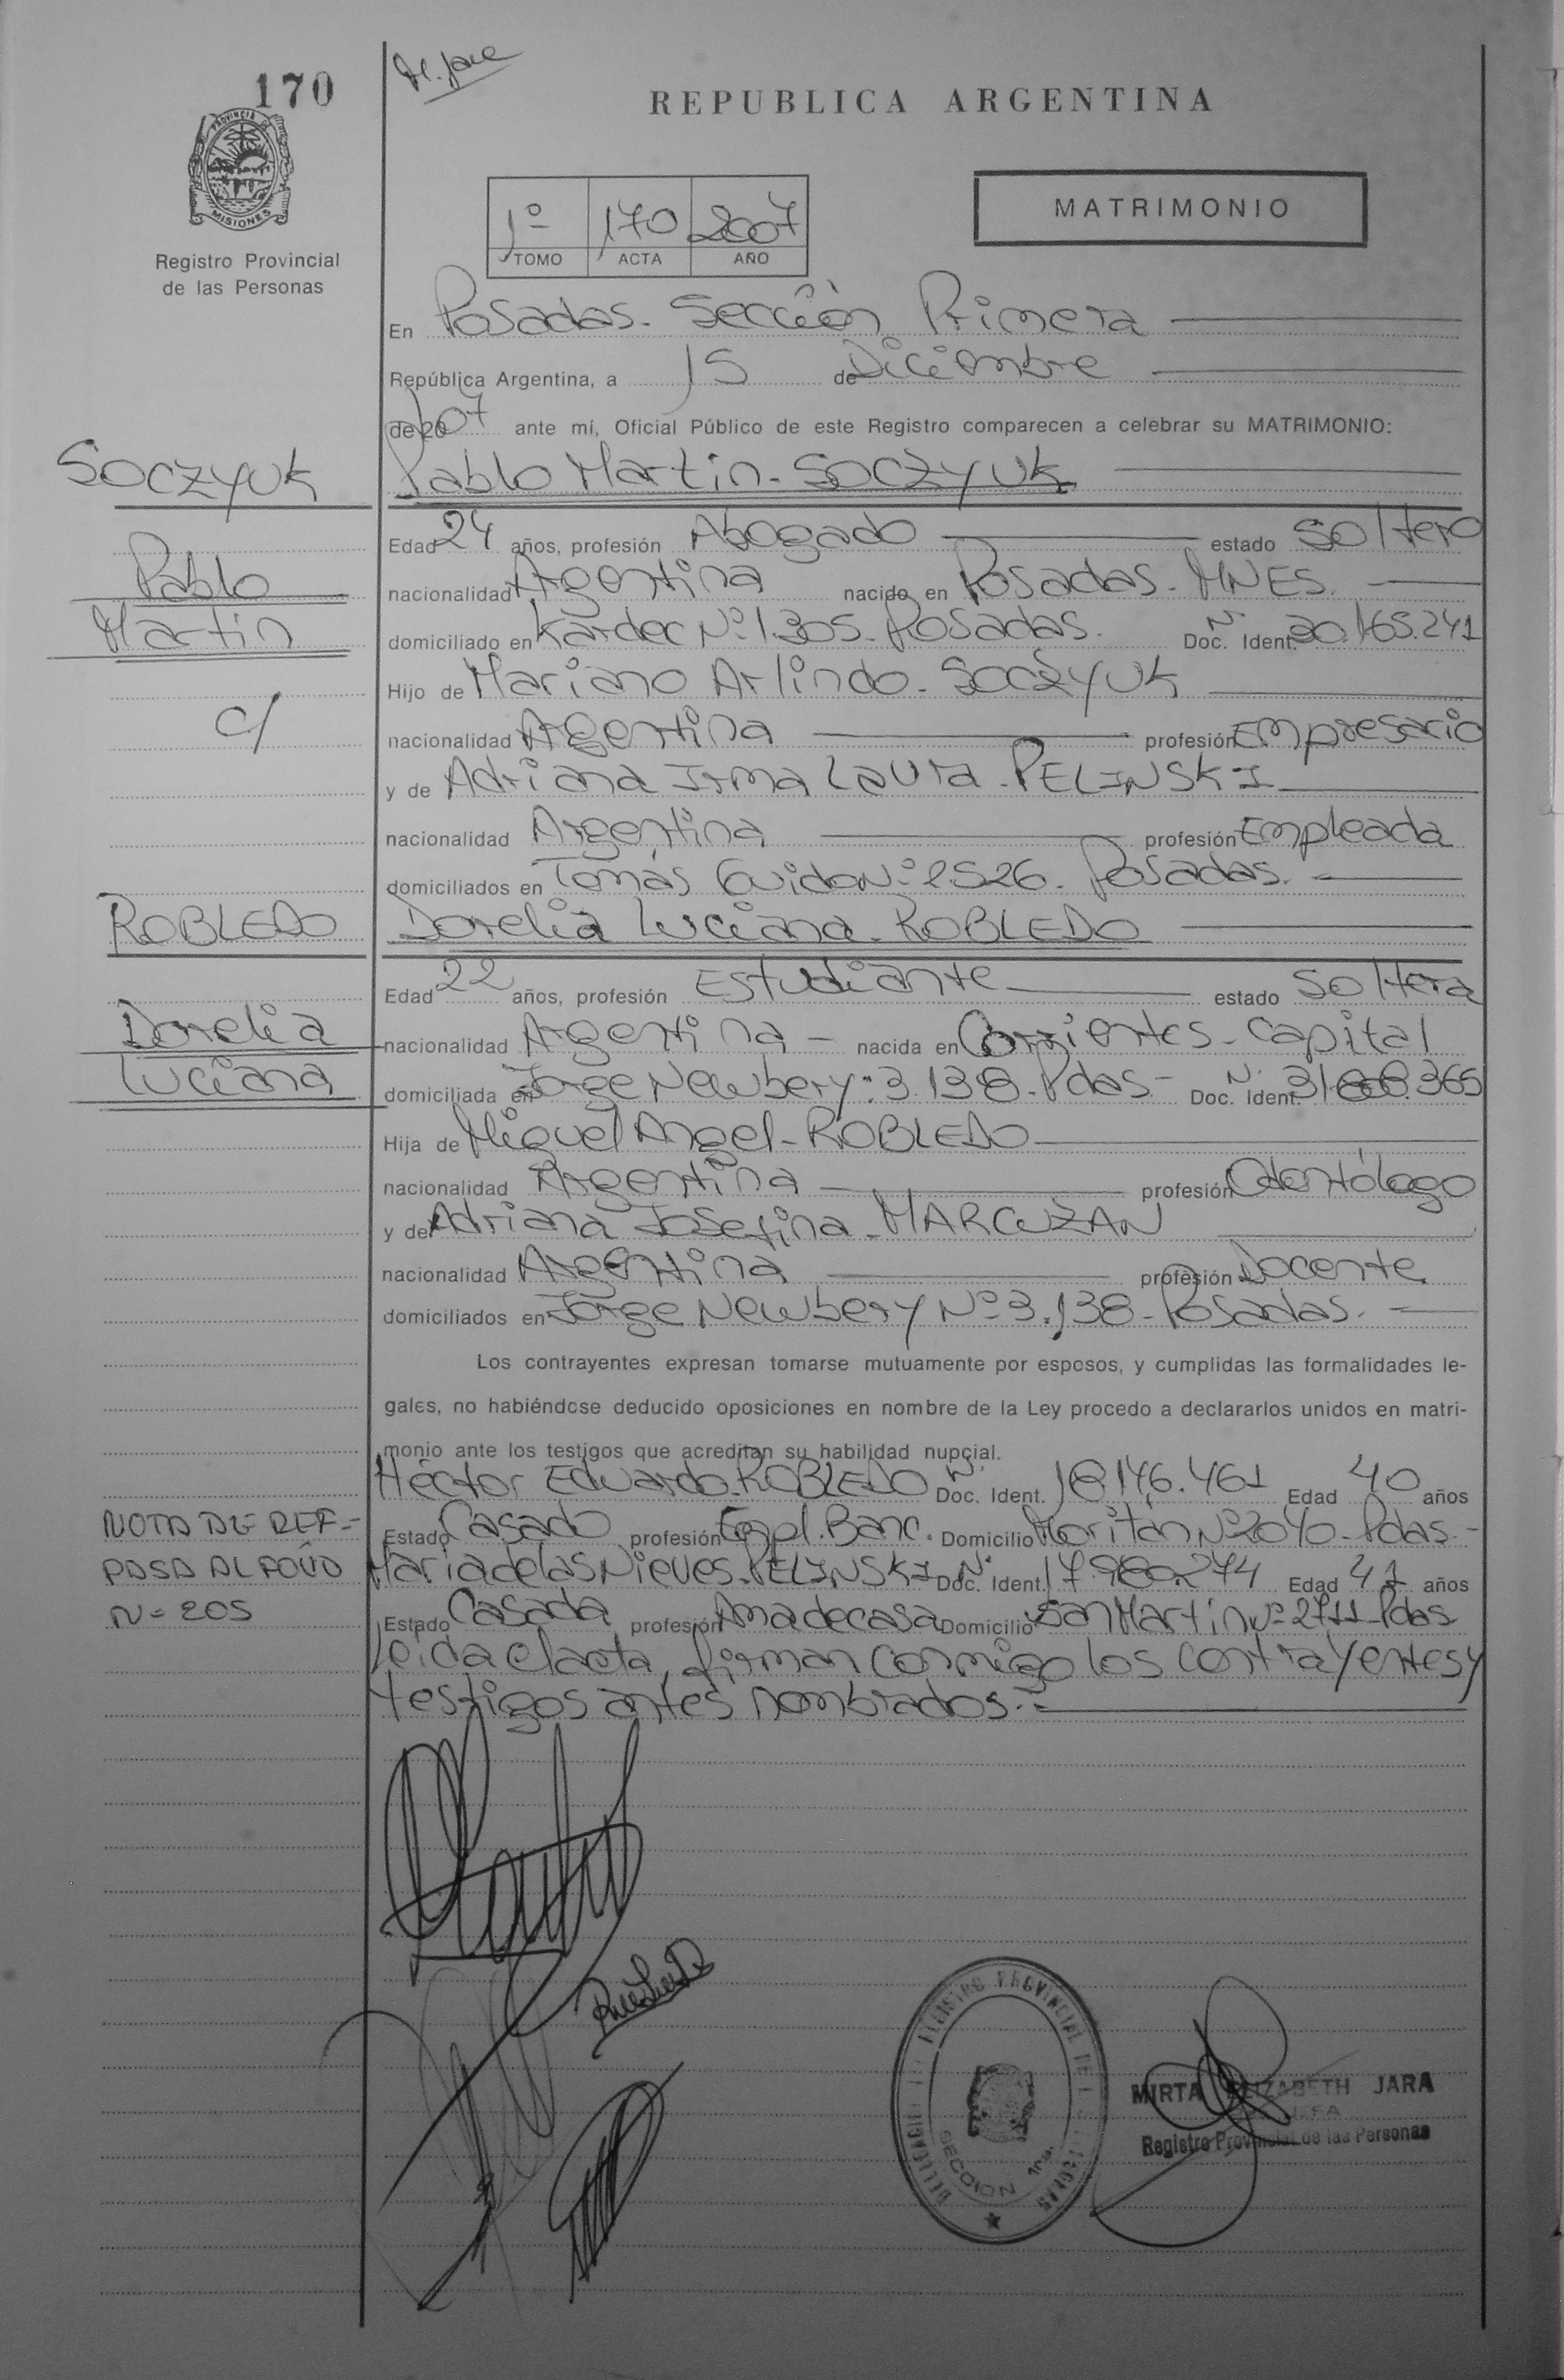 170
M. Jara
REPUBLICA ARGENTINA
PROVINCIA DE
MISIONES
Registro Provincial
de las Personas
1º 170 2007
TOMO ACTA AÑO
MATRIMONIO
En Posadas. Sección Primera
República Argentina, a 15 de Diciembre
de 2007 ante mí, Oficial Público de este Registro comparecen a celebrar su MATRIMONIO:
SOCZYUK
Pablo Martin
c/
ROBLEDO
Dorelia
Luciana
Pablo Martin - SOCZYUK
Edad 24 años, profesión Abogado estado soltero
nacionalidad Argentina nacido en Posadas - MNES.
domiciliado en Kardec Nº 1.305. Posadas. Doc. Ident. Nº 30.165.241
Hijo de Mariano Arlindo - SOCZYUK
nacionalidad Argentina profesión Empresario
y de Adriana Irma Laura - PELINSKI
nacionalidad Argentina profesión Empleada
domiciliados en Tomás Guido Nº 2526. Posadas.
Dorelia Luciana - ROBLEDO
Edad 22 años, profesión Estudiante estado soltera
nacionalidad Argentina - nacida en Corrientes - Capital
domiciliada en Jorge Newbery: 3.138 - Pdas - Doc. Ident. Nº
Hija de Miguel Angel - ROBLEDO
nacionalidad Argentina profesión Odontólogo
y de Adriana Josefina - MARCUZAN
nacionalidad Argentina profesión Docente
domiciliados en Jorge Newbery Nº 3.138 - Posadas.
Los contrayentes expresan tomarse mutuamente por esposos, y cumplidas las formalidades le-
gales, no habiéndose deducido oposiciones en nombre de la Ley procedo a declararlos unidos en matri-
monio ante los testigos que acreditan su habilidad nupcial.
Héctor Eduardo - ROBLEDO Doc. Ident. Nº 18.146.461 Edad 40 años
Estado Casado profesión Empl. Banc. Domicilio Moritán Nº 2040 - Pdas. -
Maria de las Nieves - PELINSKI Doc. Ident. Nº 17.980.274 Edad 41 años
Estado Casada profesión Ama de casa Domicilio San Martin Nº 2711 - Pdas
Leida el acta, firman conmigo los contrayentes y
testigos antes nombrados. =
NOTA DE REF -
PASA AL FOLIO
N = 205
REGISTRO PROVINCIAL DE LAS PERSONAS
SECCION 1ra.
MIRTA ELIZABETH JARA
JEFA
Registro Provincial de las Personas